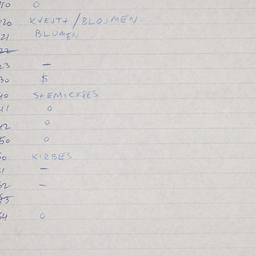 10 0
20 KVEITH / BLOJMEN
21 BLUMEN
22
23 –
30 $
40 STEMICKEES
41 0
42 0
50 0
60 KIRBES
61 –
62 –
63
64 0